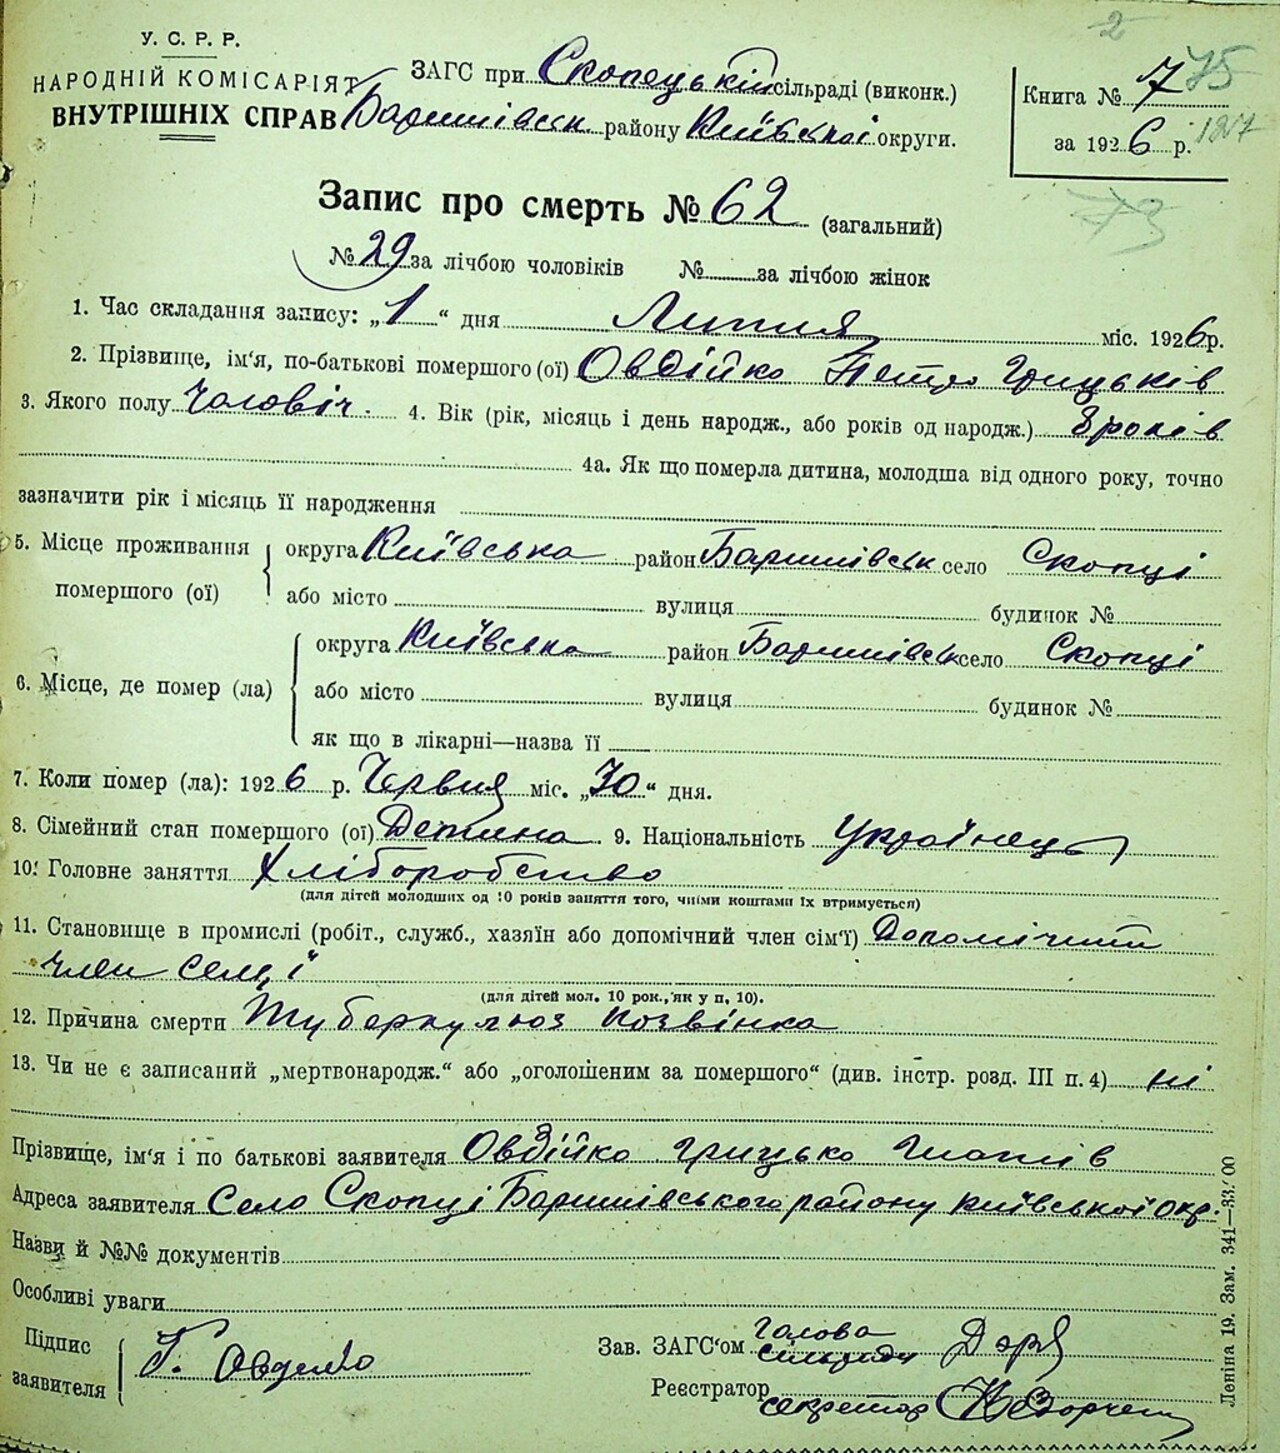 2
У. С. Р. Р.
НАРОДНІЙ КОМІСАРІЯТ
ВНУТРІШНІХ СПРАВ
ЗАГС при Скопецькій сільраді (виконк.)
Баришівськ району Київської округи.
Книга № 7 75
за 1926 р. 127
73
Запис про смерть № 62 (загальний)
№ 29 за лічбою чоловіків № за лічбою жінок
1. Час складання запису: „1“ дня Липня міс. 1926 р.
2. Прізвище, ім‘я, по-батькові помершого (ої) Овдійко Петро Грицьків
3. Якого полу Чоловіч. 4. Вік (рік, місяць і день народж., або років од народж.) 8 років
4а. Як що померла дитина, молодша від одного року, точно
зазначити рік і місяць її народження
5. Місце проживання помершого (ої) округа Київська район Баришівськ село Скопці
або місто вулиця будинок №
6. Місце, де помер (ла) округа Київська район Баришівськ село Скопці
або місто вулиця будинок №
як що в лікарні—назва її
7. Коли помер (ла): 1926 р. Червня міс. „30“ дня.
8. Сімейний стан помершого (ої) Детина. 9. Національність Українець
10. Головне заняття Хліборобство
(для дітей молодших од 10 років заняття того, чиїми коштами їх втримується)
11. Становище в промислі (робіт., служб., хазяїн або допомічний член сім‘ї) Допомічний
член семї
(для дітей мол. 10 рок., як у п, 10).
12. Причина смерти Туберкульоз
13. Чи не є записаний „мертвонародж.“ або „оголошеним за помершого“ (див. інстр. розд. III п. 4) ні
Прізвище, ім‘я і по батькові заявителя Овдійко Грицько
Адреса заявителя Село Скопці Баришівського району Київської окр.
Назви й №№ документів
Особливі уваги
Підпис заявителя Г. Овдейко
Зав. ЗАГС‘ом голова сільради
Реєстратор секретар
Леніна 19. Зам. 341—33.′00